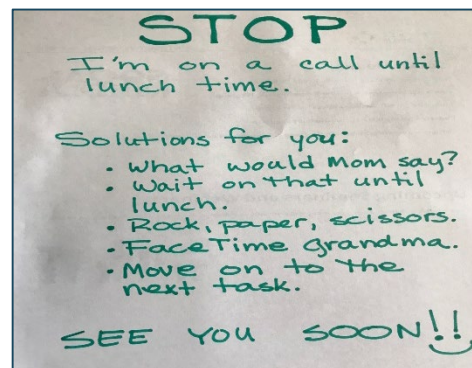 STOP
I'm on a call until
lunch time.
Solutions for you:
• What would Mom say?
• Wait on that until
lunch.
• Rock, paper, scissors.
• FaceTime Grandma.
• Move on to the
next task.
SEE YOU SOON!!